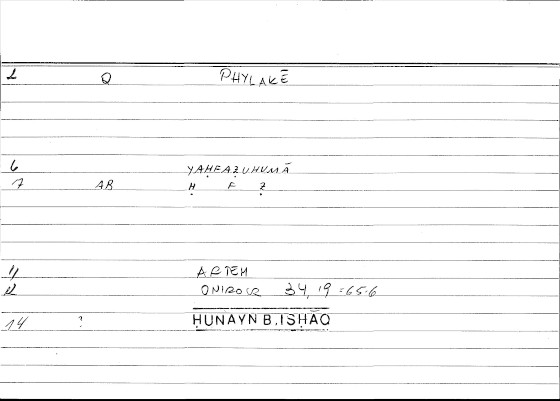 1 Q PHYLAKĒ
6 YAḤFAẒUHUMĀ
7 AR Ḥ F Ẓ
11 ARTEM
12 ONIROCR 34, 19 = 65-6
14 ? ḤUNAYN B. ISḤĀQ